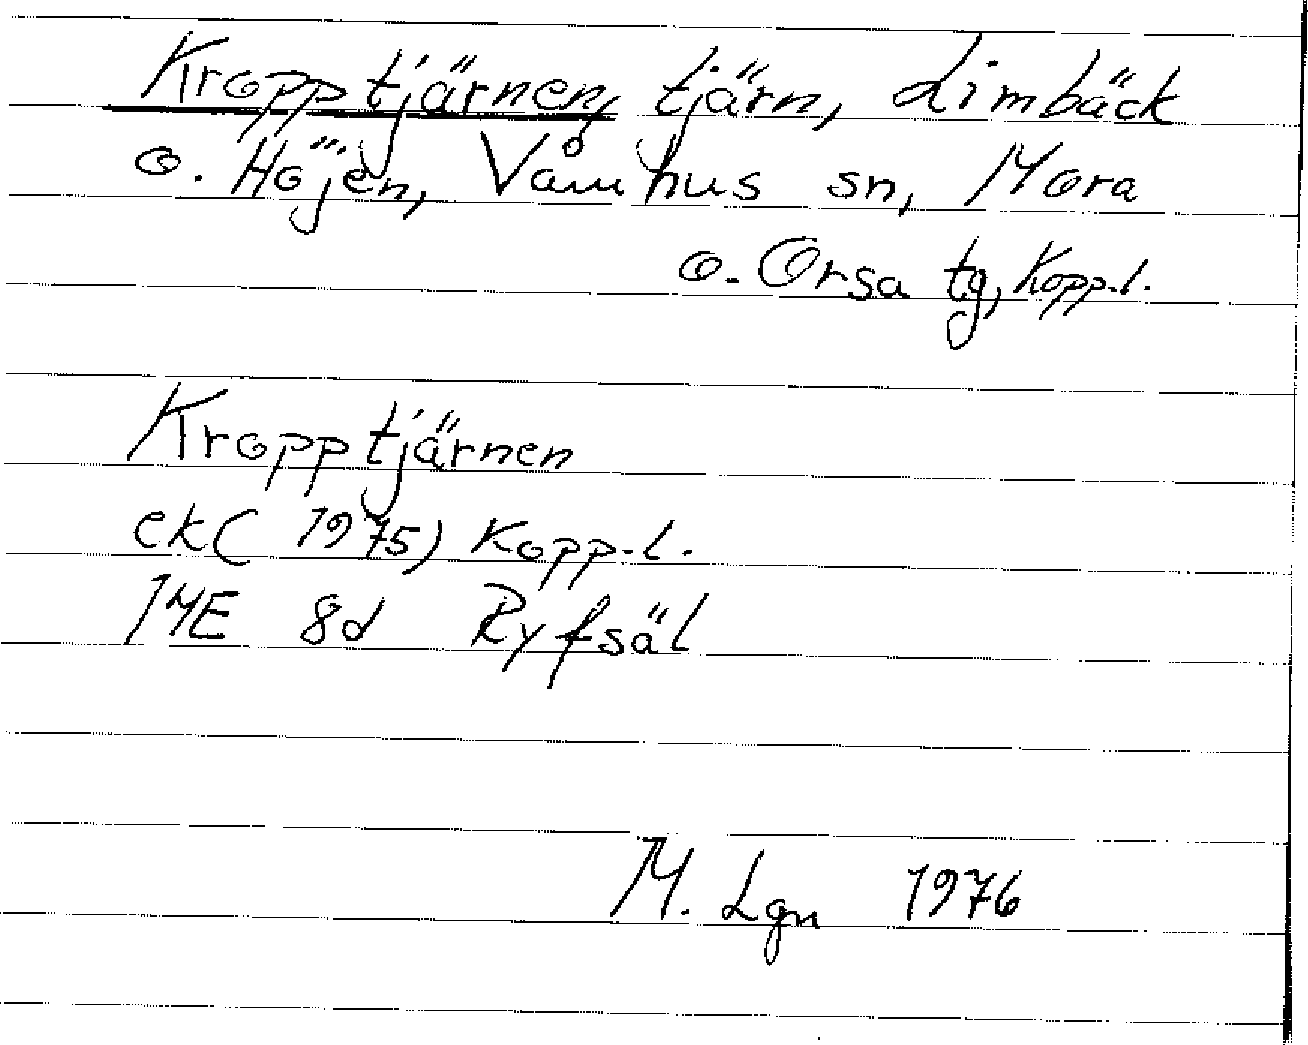 Kropptjärnen, tjärn, Limbäck
o. Höjen, Våmhus sn, Mora
o. Orsa tg, Kopp.l.
Kropptjärnen
ek (1975) Kopp.l.
14E 8d Ryfsäl
M. Lgn 1976